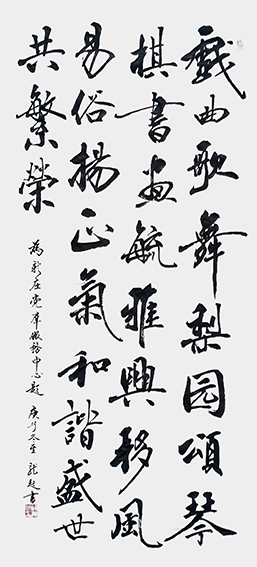 戲曲歌舞梨园頌琴
棋書畫毓雅興移風
易俗揚正氣和諧盛世
共繁榮
為新庄党群服務中心題 庚子冬至 龍起書